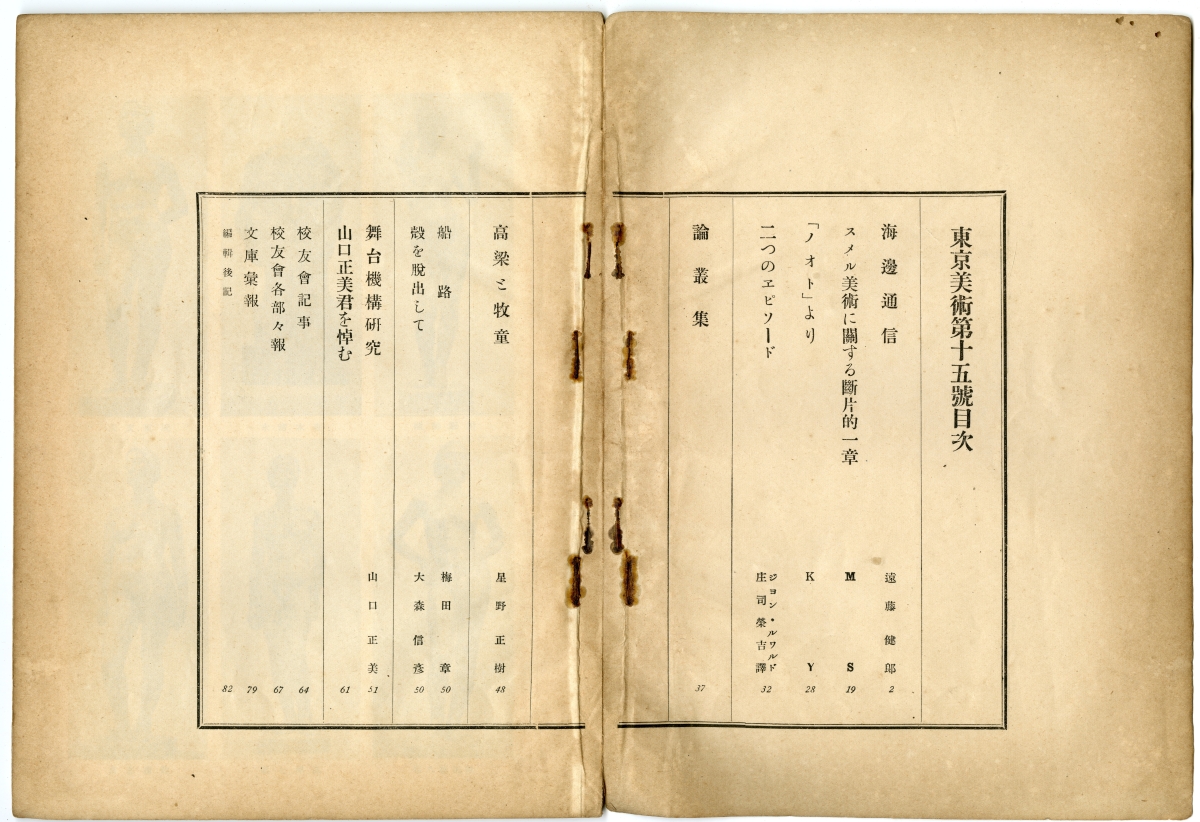 東京美術第十五號目次
海邊通信 遠藤健郎 2
スメル美術に關する斷片的一章 M S 19
「ノオト」より K Y 28
二つのエピソード ジヨン・ルワルド 庄司榮吉譯 32
論叢集 37
高梁と牧童 星野正樹 48
船路 梅田章 50
殼を脫出して 大森信彥 50
舞台機構硏究 山口正美 51
山口正美君を悼む 61
校友會記事 64
校友會各部々報 67
文庫彙報 79
編輯後記 82